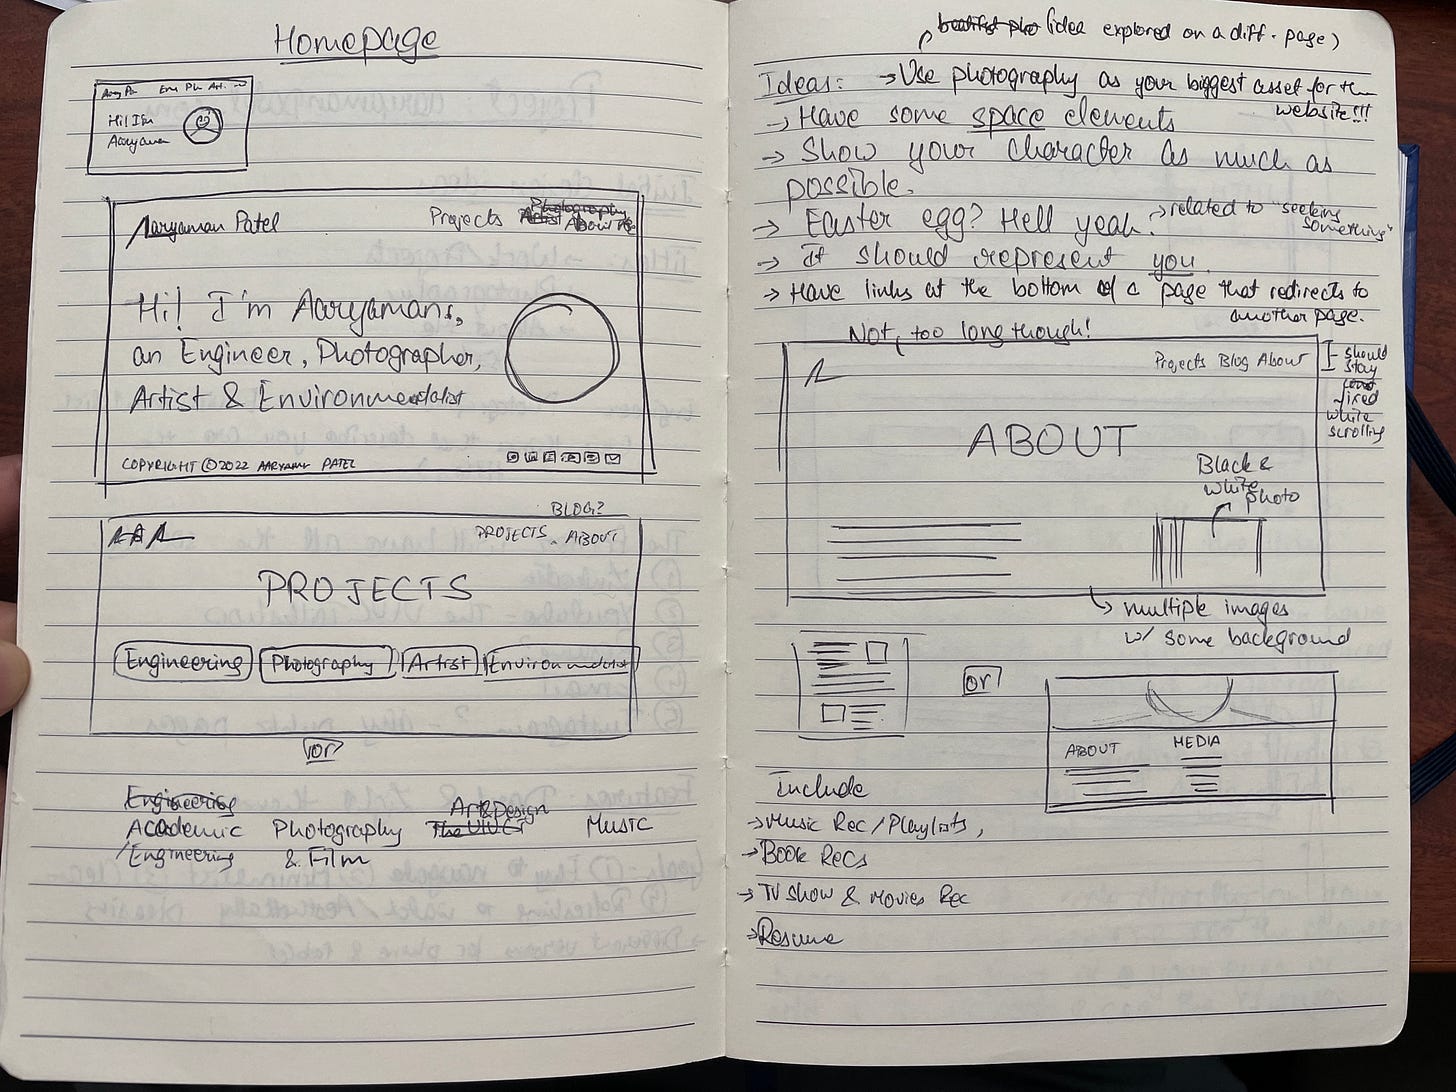 Homepage
Hi! I'm
Aaryaman
Aaryaman Patel
Projects
Photography
Artist
About Me
Hi! I'm Aaryamans,
an Engineer, Photographer,
Artist & Environmentalist
COPYRIGHT © 2022 AARYAMAN PATEL
BLOG?
PROJECTS. ABOUT
PROJECTS
Engineering Photography Artist Environmentalist
or
Engineering
Academic
/Engineering
Photography
& Film
Art&Design
The UIUC
MUSIC
(idea explored on a diff. page)
Ideas: → Use photography as your biggest asset for the
website!!!
→ Have some space elements
→ Show your character as much as
possible.
→ Easter egg? Hell yeah. → related to "seeking
something"
→ it should represent you.
→ Have links at the bottom of a page that redirects to
another page.
Not too long though!
Projects Blog About
should
stay
fixed
while
scrolling
ABOUT
Black &
white
photo
multiple images
w/ some background
or
ABOUT
MEDIA
Include
→ Music Rec/Playlists,
→ Book Recs
→ TV Show & Movies Rec
→ Resume